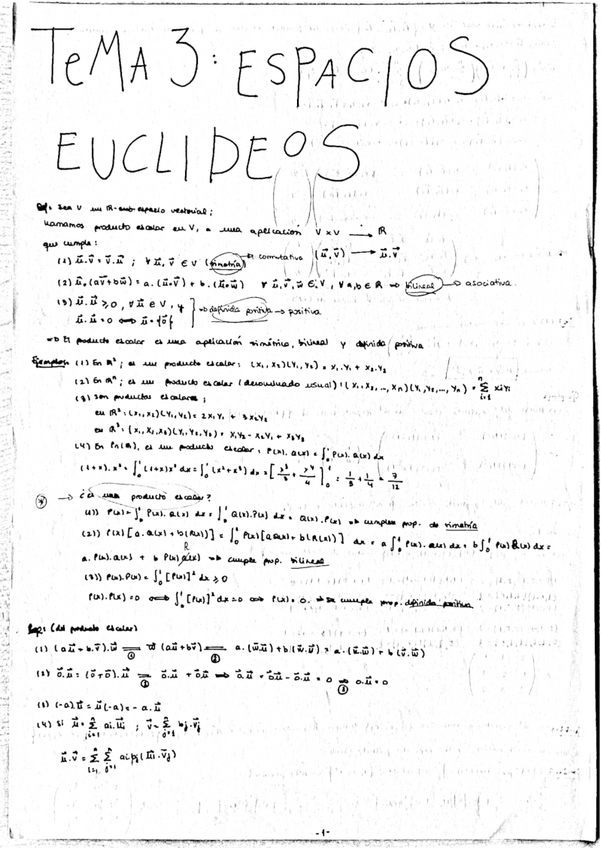 TEMA 3: ESPACIOS
EUCLIDEOS
Def: Sea V un ℝ-sub espacio vectorial;
Llamamos producto escalar en V, a una aplicación V × V → ℝ
que cumple: (u⃗, v⃗) → u⃗·v⃗
(1) u⃗·v⃗ = v⃗·u⃗ ; ∀ u⃗, v⃗ ∈ V (simetría) → conmutativa
(2) u⃗·(av⃗ + bw⃗) = a·(u⃗·v⃗) + b·(u⃗·w⃗) ∀ u⃗, v⃗, w⃗ ∈ V, ∀ a, b ∈ ℝ ⇒ bilineal → asociativa.
(3) u⃗·u⃗ ≥ 0, ∀ u⃗ ∈ V, y
u⃗·u⃗ = 0 ⟺ u⃗ = {0⃗} } ⇒ definida positiva → positiva
⇒ El producto escalar es una aplicación simétrica, bilineal y definida positiva
Ejemplos: (1) En ℝ²; es un producto escalar: (x₁, x₂)(y₁, y₂) = x₁·y₁ + x₂·y₂
(2) En ℝⁿ; es un producto escalar (denominado usual): (x₁, x₂, ..., xₙ)(y₁, y₂, ..., yₙ) = Σⁿᵢ₌₁ xᵢyᵢ
(3) Son productos escalares;
en ℝ²: (x₁, x₂)(y₁, y₂) = 2x₁y₁ + 3x₂y₂
(4) En Pn(ℝ), es un producto escalar: P(x)·Q(x) = ∫₀¹ P(x)·Q(x) dx
(1+x)·x² = ∫₀¹ (1+x)x² dx = ∫₀¹ (x²+x³) dx = [x³/3 + x⁴/4]₀¹ = 1/3 + 1/4 = 7/12
(*) → ¿Es un producto escalar?
(1)) P(x)·Q(x) = ∫₀¹ P(x)·Q(x) dx = ∫₀¹ Q(x)·P(x) dx = Q(x)·P(x) ⇒ cumple prop. de simetría
(2)) P(x)[a·Q(x) + b(R(x))] = ∫₀¹ P(x)[aQ(x) + b(R(x))] dx = a∫₀¹ P(x)·Q(x) dx + b∫₀¹ P(x)R(x) dx =
a·P(x)·Q(x) + b P(x)R(x) ⇒ cumple prop. bilineal
(3)) P(x)·P(x) = ∫₀¹ [P(x)]² dx ≥ 0
P(x)·P(x) = 0 ⟺ ∫₀¹ [P(x)]² dx = 0 ⟺ P(x) = 0. ⇒ Se cumple prop. definida positiva
Prop: (del producto escalar)
(1) (au⃗ + b·v⃗)·w⃗ = w⃗(au⃗ + bv⃗) = a·(w⃗·u⃗) + b(w⃗·v⃗) = a·(u⃗·w⃗) + b(v⃗·w⃗)
(2) 0⃗·u⃗ = (0⃗+0⃗)·u⃗ = 0⃗·u⃗ + 0⃗·u⃗ ⇒ 0⃗·u⃗ + 0⃗·u⃗ − 0⃗·u⃗ = 0 ⇒ 0·u⃗ = 0
(3) (-a)·u⃗ = u⃗(-a) = -a·u⃗
(4) Si u⃗ = Σⁿᵢ₌₁ aᵢ·u⃗ᵢ ; v⃗ = Σⁿⱼ₌₁ bⱼ·v⃗ⱼ
u⃗·v⃗ = Σⁿᵢ₌₁ Σⁿⱼ₌₁ aᵢbⱼ(u⃗ᵢ·v⃗ⱼ)
-1-